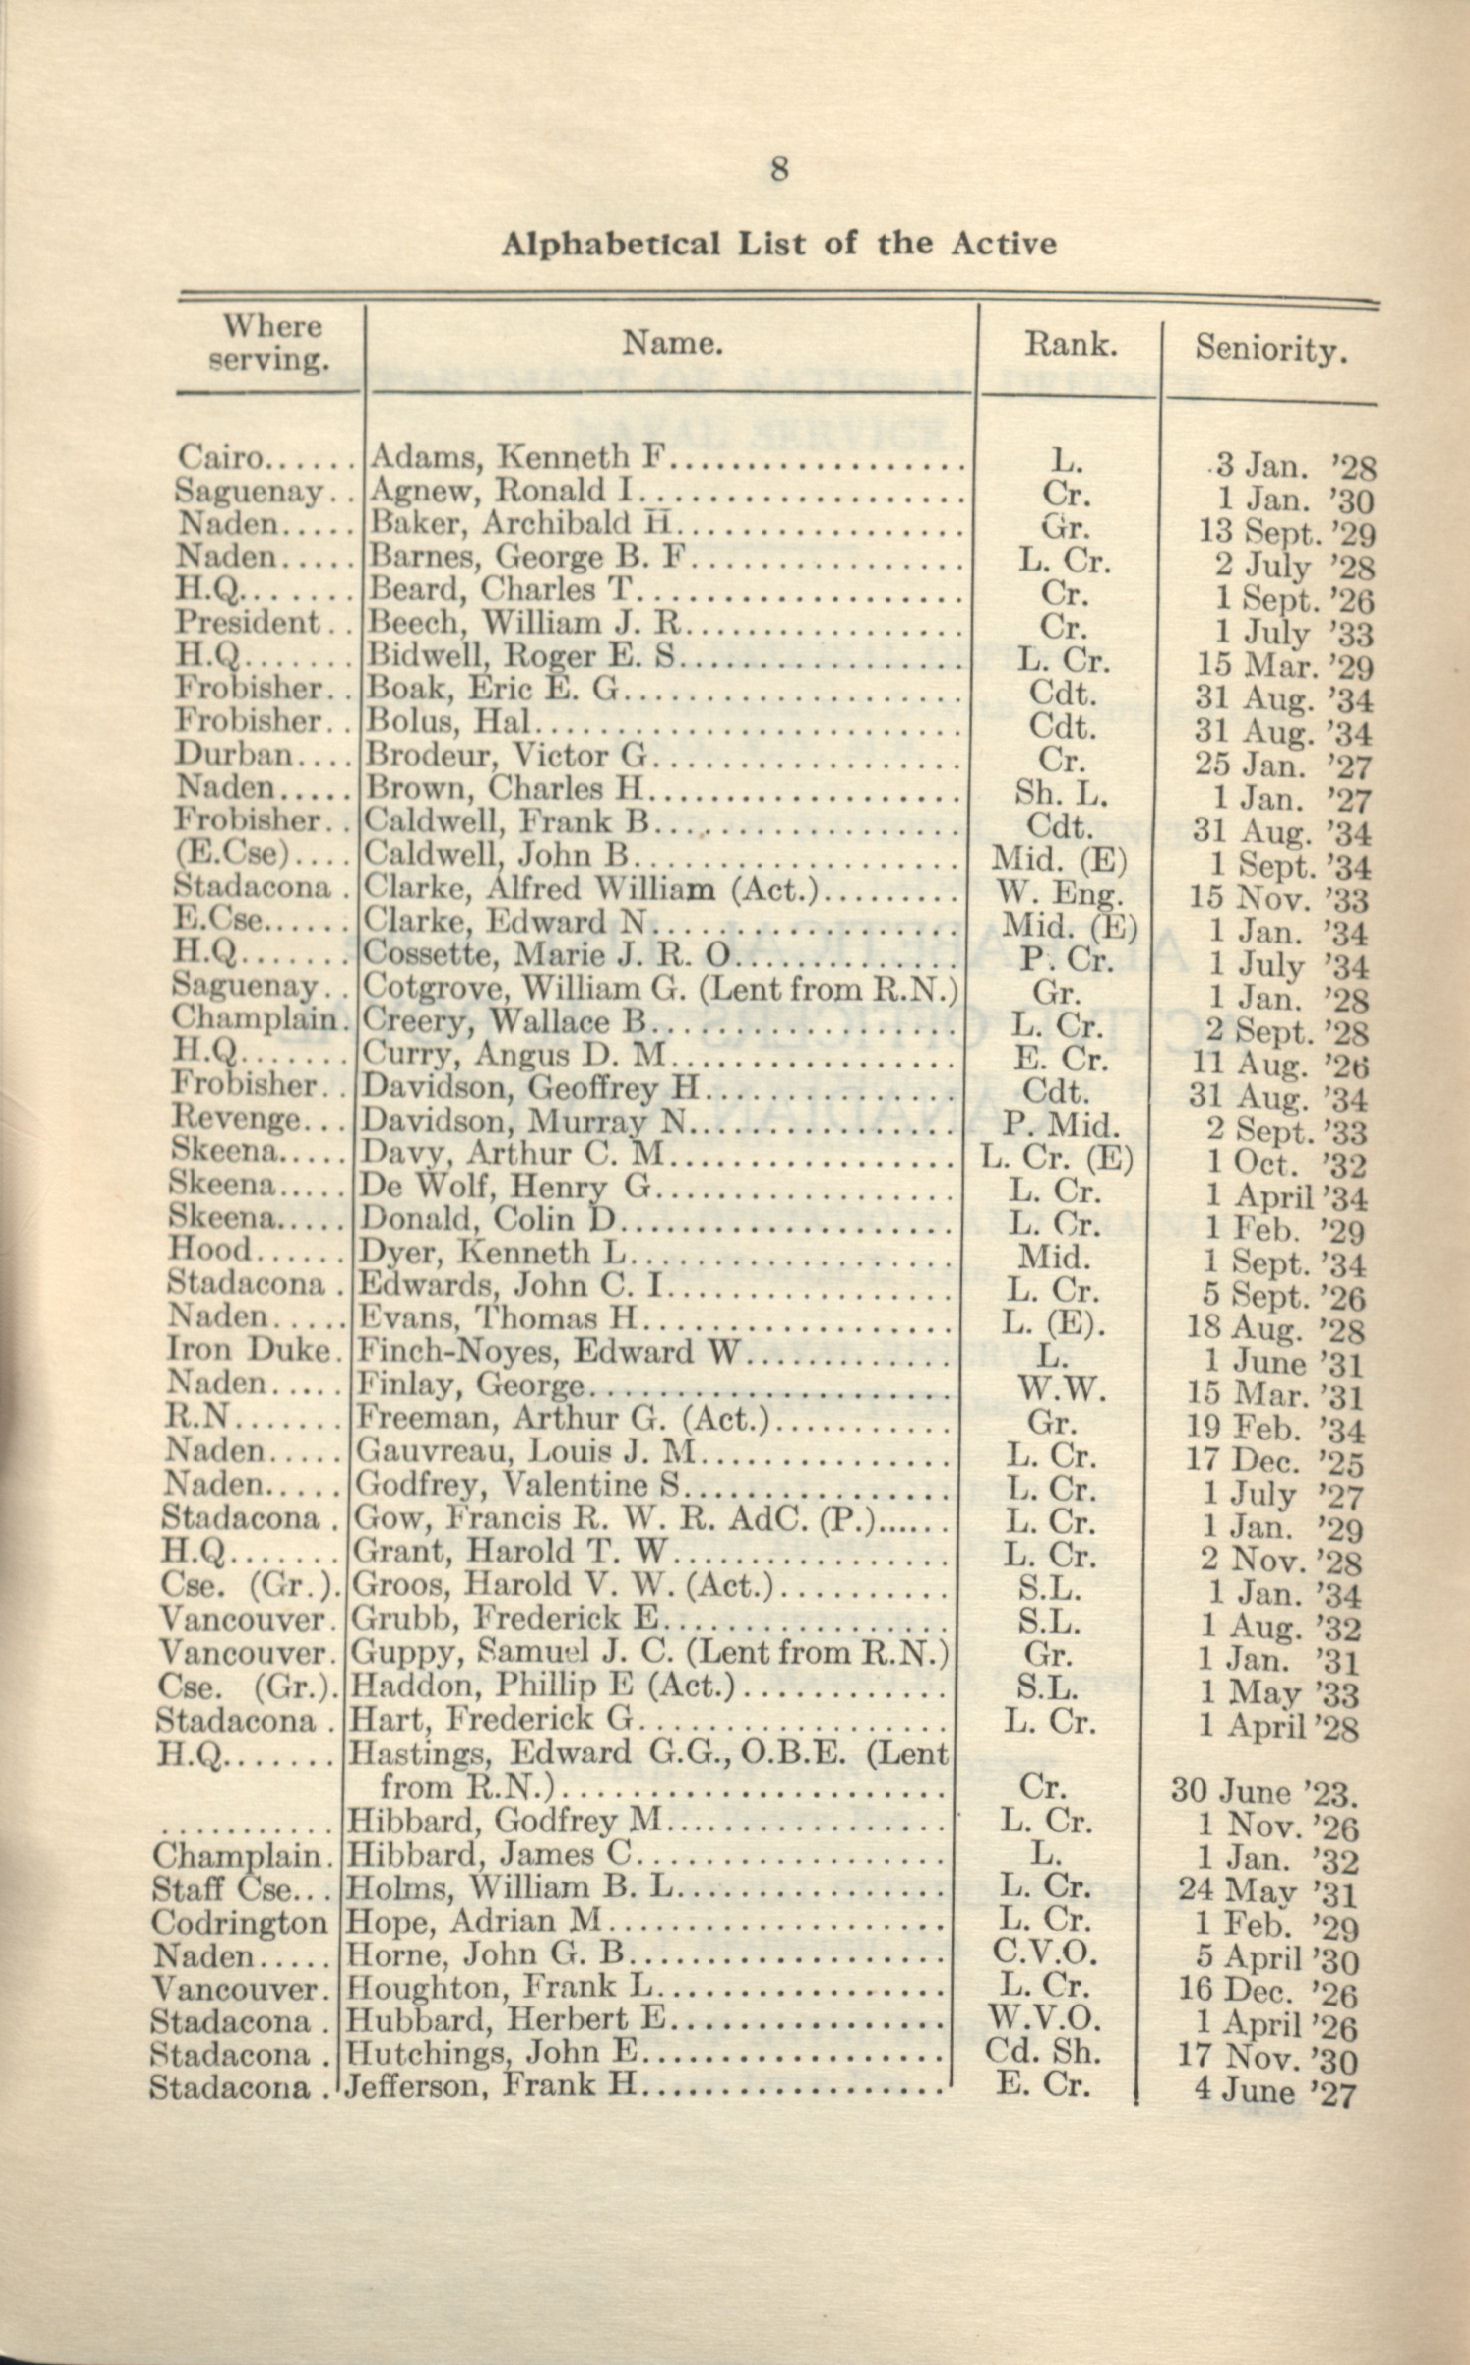 8
Alphabetical List of the Active
Where serving. Name. Rank. Seniority.
Cairo...... Adams, Kenneth F................... L. 3 Jan. '28
Saguenay.. Agnew, Ronald I.................... Cr. 1 Jan. '30
Naden..... Baker, Archibald H.................. Gr. 13 Sept. '29
Naden..... Barnes, George B. F................. L. Cr. 2 July '28
H.Q....... Beard, Charles T.................... Cr. 1 Sept. '26
President.. Beech, William J. R................. Cr. 1 July '33
H.Q....... Bidwell, Roger E. S................. L. Cr. 15 Mar. '29
Frobisher.. Boak, Eric E. G..................... Cdt. 31 Aug. '34
Frobisher.. Bolus, Hal.......................... Cdt. 31 Aug. '34
Durban.... Brodeur, Victor G................... Cr. 25 Jan. '27
Naden..... Brown, Charles H................... Sh. L. 1 Jan. '27
Frobisher.. Caldwell, Frank B................... Cdt. 31 Aug. '34
(E.Cse).... Caldwell, John B.................... Mid. (E) 1 Sept. '34
Stadacona . Clarke, Alfred William (Act.)......... W. Eng. 15 Nov. '33
E.Cse...... Clarke, Edward N................... Mid. (E) 1 Jan. '34
H.Q....... Cossette, Marie J. R. O.............. P. Cr. 1 July '34
Saguenay.. Cotgrove, William G. (Lent from R.N.) Gr. 1 Jan. '28
Champlain. Creery, Wallace B................... L. Cr. 2 Sept. '28
H.Q....... Curry, Angus D. M.................. E. Cr. 11 Aug. '26
Frobisher.. Davidson, Geoffrey H................ Cdt. 31 Aug. '34
Revenge... Davidson, Murray N................. P. Mid. 2 Sept. '33
Skeena..... Davy, Arthur C. M.................. L. Cr. (E) 1 Oct. '32
Skeena..... De Wolf, Henry G................... L. Cr. 1 April '34
Skeena..... Donald, Colin D..................... L. Cr. 1 Feb. '29
Hood...... Dyer, Kenneth L.................... Mid. 1 Sept. '34
Stadacona . Edwards, John C. I.................. L. Cr. 5 Sept. '26
Naden..... Evans, Thomas H................... L. (E). 18 Aug. '28
Iron Duke. Finch-Noyes, Edward W............. L. 1 June '31
Naden..... Finlay, George....................... W.W. 15 Mar. '31
R.N....... Freeman, Arthur G. (Act.)........... Gr. 19 Feb. '34
Naden..... Gauvreau, Louis J. M................ L. Cr. 17 Dec. '25
Naden..... Godfrey, Valentine S................. L. Cr. 1 July '27
Stadacona . Gow, Francis R. W. R. AdC. (P.)...... L. Cr. 1 Jan. '29
H.Q....... Grant, Harold T. W................. L. Cr. 2 Nov. '28
Cse. (Gr.). Groos, Harold V. W. (Act.).......... S.L. 1 Jan. '34
Vancouver. Grubb, Frederick E.................. S.L. 1 Aug. '32
Vancouver. Guppy, Samuel J. C. (Lent from R.N.) Gr. 1 Jan. '31
Cse. (Gr.). Haddon, Phillip E (Act.)............. S.L. 1 May '33
Stadacona . Hart, Frederick G................... L. Cr. 1 April '28
H.Q....... Hastings, Edward G.G., O.B.E. (Lent
from R.N.)....................... Cr. 30 June '23.
........... Hibbard, Godfrey M................. L. Cr. 1 Nov. '26
Champlain. Hibbard, James C................... L. 1 Jan. '32
Staff Cse... Holms, William B. L................. L. Cr. 24 May '31
Codrington Hope, Adrian M..................... L. Cr. 1 Feb. '29
Naden..... Horne, John G. B.................... C.V.O. 5 April '30
Vancouver. Houghton, Frank L.................. L. Cr. 16 Dec. '26
Stadacona . Hubbard, Herbert E................. W.V.O. 1 April '26
Stadacona . Hutchings, John E................... Cd. Sh. 17 Nov. '30
Stadacona . Jefferson, Frank H................... E. Cr. 4 June '27